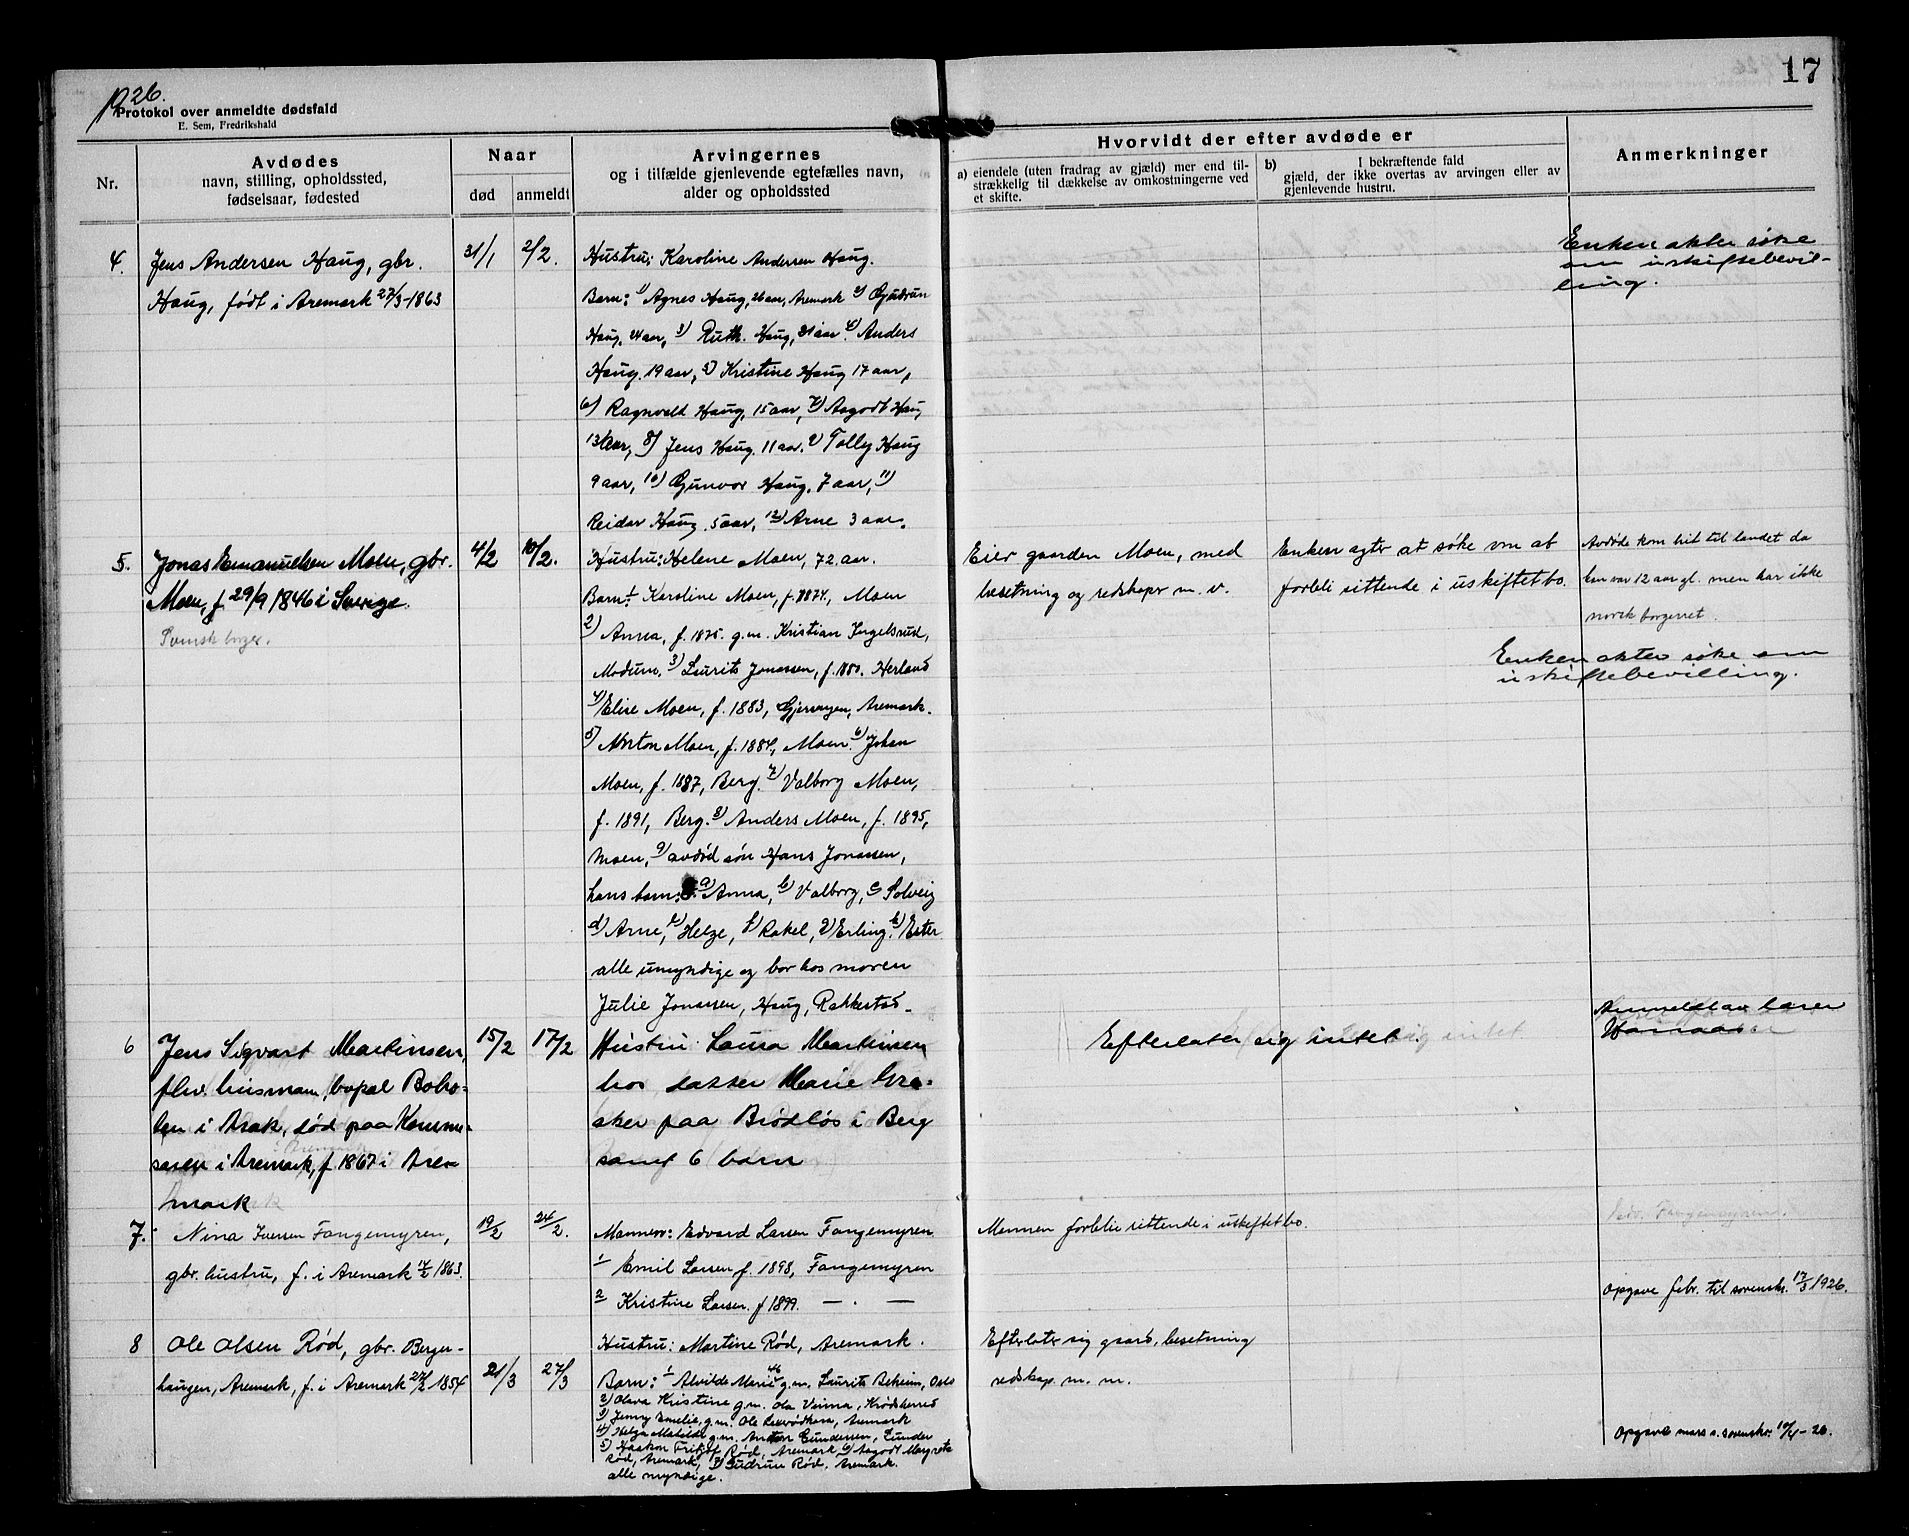 1926.
17
Protokol over anmeldte dødsfald
E. Sem, Fredrikshald
Nr.
Avdødes
navn, stilling, opholdssted,
fødselsaar, fødested
Naar
død
anmeldt
Arvingernes
og i tilfælde gjenlevende egtefælles navn,
alder og opholdssted
Hvorvidt der efter avdøde er
a) eiendele (uten fradrag av gjæld) mer end til-
strækkelig til dækkelse av omkostningerne ved
et skifte.
b) I bekræftende fald
gjæld, der ikke overtas av arvingen eller av
gjenlevende hustru.
Anmerkninger
4. Jens Andersen Haug, gbr.
Haug, født i Aremark 27/3-1863
31/1 2/2.
Hustru: Karoline Andersen Haug.
Barn: 1) Agnes Haug, 26 aar, Aremark 2) Gudrun
Haug, 24 aar, 3) Ruth Haug, 21 aar 4) Anders
Haug, 19 aar, 5) Kristine Haug 17 aar,
6) Ragnvald Haug, 15 aar, 7) Aagodt Haug
13 aar, 8) Jens Haug, 11 aar. 9) Tolley Haug
9 aar, 10) Gunvor Haug, 7 aar, 11)
Reidar Haug 5 aar, 12) Arne 3 aar.
Enken akter søke
om uskiftebevil-
ling.
5. Jonas Emanuelsen Moen, gbr.
Moen, f. 29/9 1846 i Sverige.
Svensk borger.
4/2 10/2.
Hustru: Helene Moen, 72 aar.
Barn: 1 Karoline Moen, f. 1874, Moen
2) Anna, f. 1875. g.m. Kristian Ingelsrud,
Modum. 3) Laurits Jonassen, f. 1880. Herland
4) Elise Moen, f. 1883, Aremark.
5) Morton Moen, f. 1884, Moen. 6) Johan
Moen, f. 1887, Berg. 7) Valborg Moen,
f. 1891, Berg. 8) Anders Moen, f. 1895,
Moen, 9) avdød søn Hans Jonassen,
hans barn: a) Anna, b) Valborg, c) Solveig
d) Arne, e) Helge, f) Rakel, g) Erling. h) Ester
alle umyndige og bor hos moren
Julie Jonassen, Haug, Rakkestad.
Eier gaarden Moen, med
besetning og redskaper m. v.
Enken agter at søke om at
forbli sittende i uskiftet bo.
Avdøde kom hit til landet da
han var 12 aar gl. men har ikke
norsk borgerret.
Enken akter søke om
uskiftebevilling.
6 Jens Sigvart Martinsen,
fhv. husmann, bopæl Bobo-
ten i Arak, død paa Kommu-
nasen i Aremark, f. 1867 i Are-
mark
15/2 17/2
Hustru Laura Martinsen
hos datter Marie Gra-
aker paa Brødløs i Berg
samt 6 barn
Efterlater sig intet
Anmeldt av lærer
7. Nina Iversen Fangemyren,
gbr. hustru, f. i Aremark 1863.
19/2 24/2.
Mannen: Edvard Larsen Fangemyren
1 Emil Larsen f. 1898, Fangemyren
2 Kristine Larsen. f 1899. — . —
Mannen forblir sittende i uskiftet bo.
Edv. Fangemyren.
Opgave febr. til sorensk. 17/3 1926.
8 Ole Olsen Rød, gbr. Berger-
haugen, Aremark, f. i Aremark 1854
21/3 27/3
Hustru: Martine Rød, Aremark.
Barn: 1 Alvilde Marie 46 g.m. Laurits Beheim, Oslo
2) Olava Kristine g.m. Ola Veima, Krødsherred
3) Jenny Emelie, g.m. Ole, Aremark
4) Helga Matilde g.m. Anton Gundersen, Lunder
5) Haakon Fritjof Rød, Aremark 6) Aagodt Margrete
Rød, Aremark, 7) Gudrun Rød, Aremark.
alle myndige.
Efterlater sig gaard, besetning
redskap m. m.
Opgave mars s. sorenskr. 10/4 - 26.